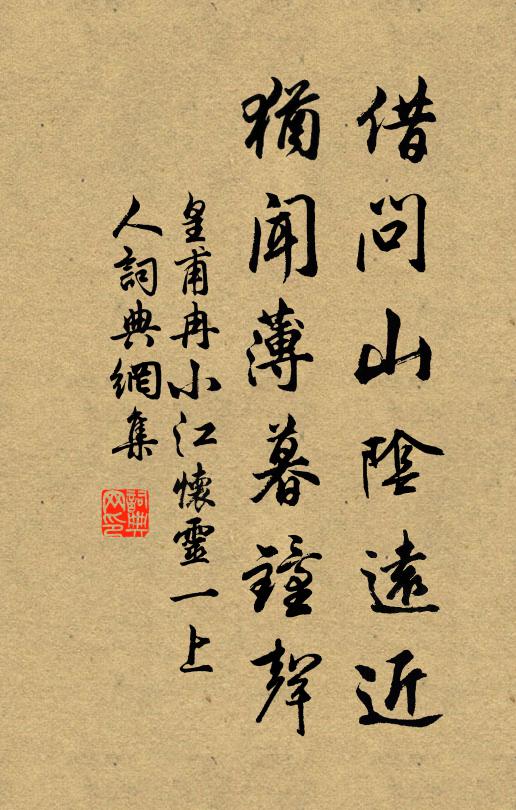 借问山陰遠近
猶聞薄暮鐘聲
皇甫冉小江懷靈一上
人詞典網集
詞典
网印